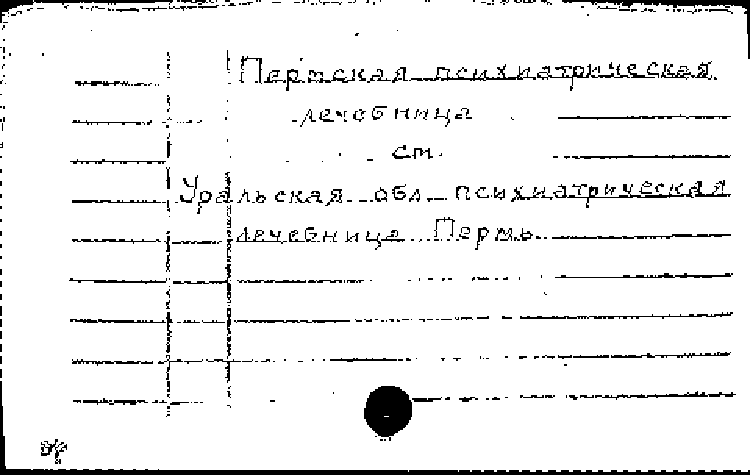 Пермская психиатрическая
лечебница
см.
Уральская обл. психиатрическая
лечебница Пермь